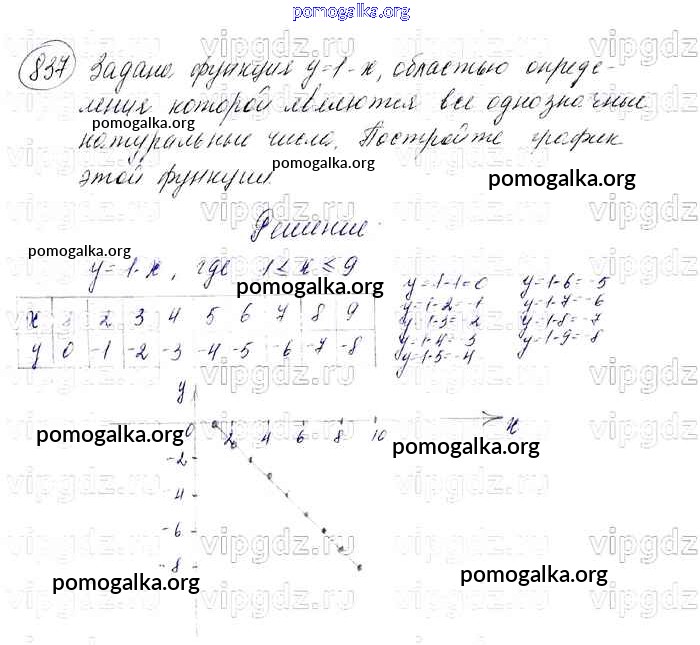 pomogalka.org
837 Задана функция y=1-x, областью опреде-
ления которой являются все однозначные
pomogalka.org
натуральные числа. Постройте график
pomogalka.org
этой функции.
pomogalka.org
Решение.
pomogalka.org
y=1-x, где 1≤x≤9
pomogalka.org
y=1-1=0 y=1-6=-5
y=1-2=-1 y=1-7=-6
y=1-3=-2 y=1-8=-7
y=1-4=-3 y=1-9=-8
y=1-5=-4
x 1 2 3 4 5 6 7 8 9
y 0 -1 -2 -3 -4 -5 -6 -7 -8
y
0 2 4 6 8 10 x
pomogalka.org pomogalka.org
-2
-4
-6
-8
pomogalka.org pomogalka.org
vipgdz.ru